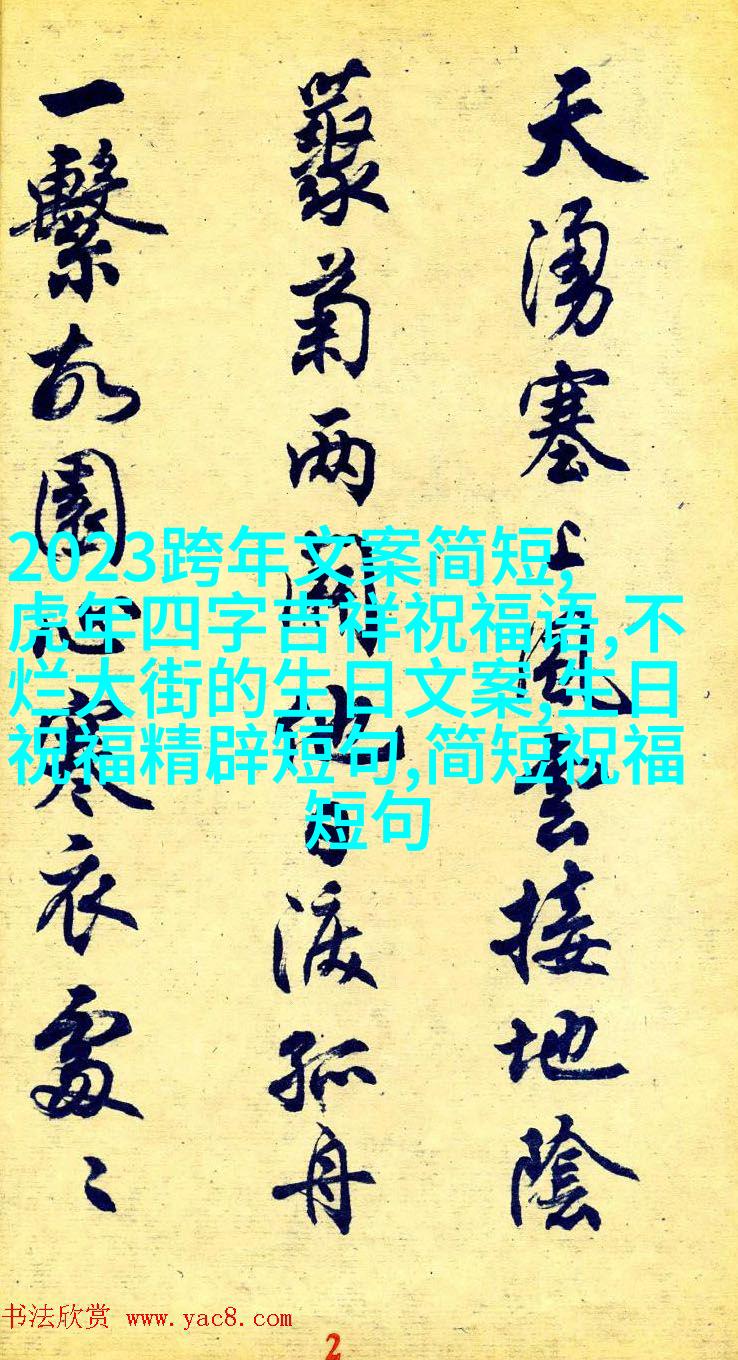 天湧塞上風雲接地陰
藂菊两開他日淚孤舟
一繫故園心寒衣處〻
2023跨年文案简短,
虎年四字吉祥祝福语,不
烂大街的生日文案,生日
祝福精辟短句,简短祝福
短句
书法欣赏 www.yac8.com
2